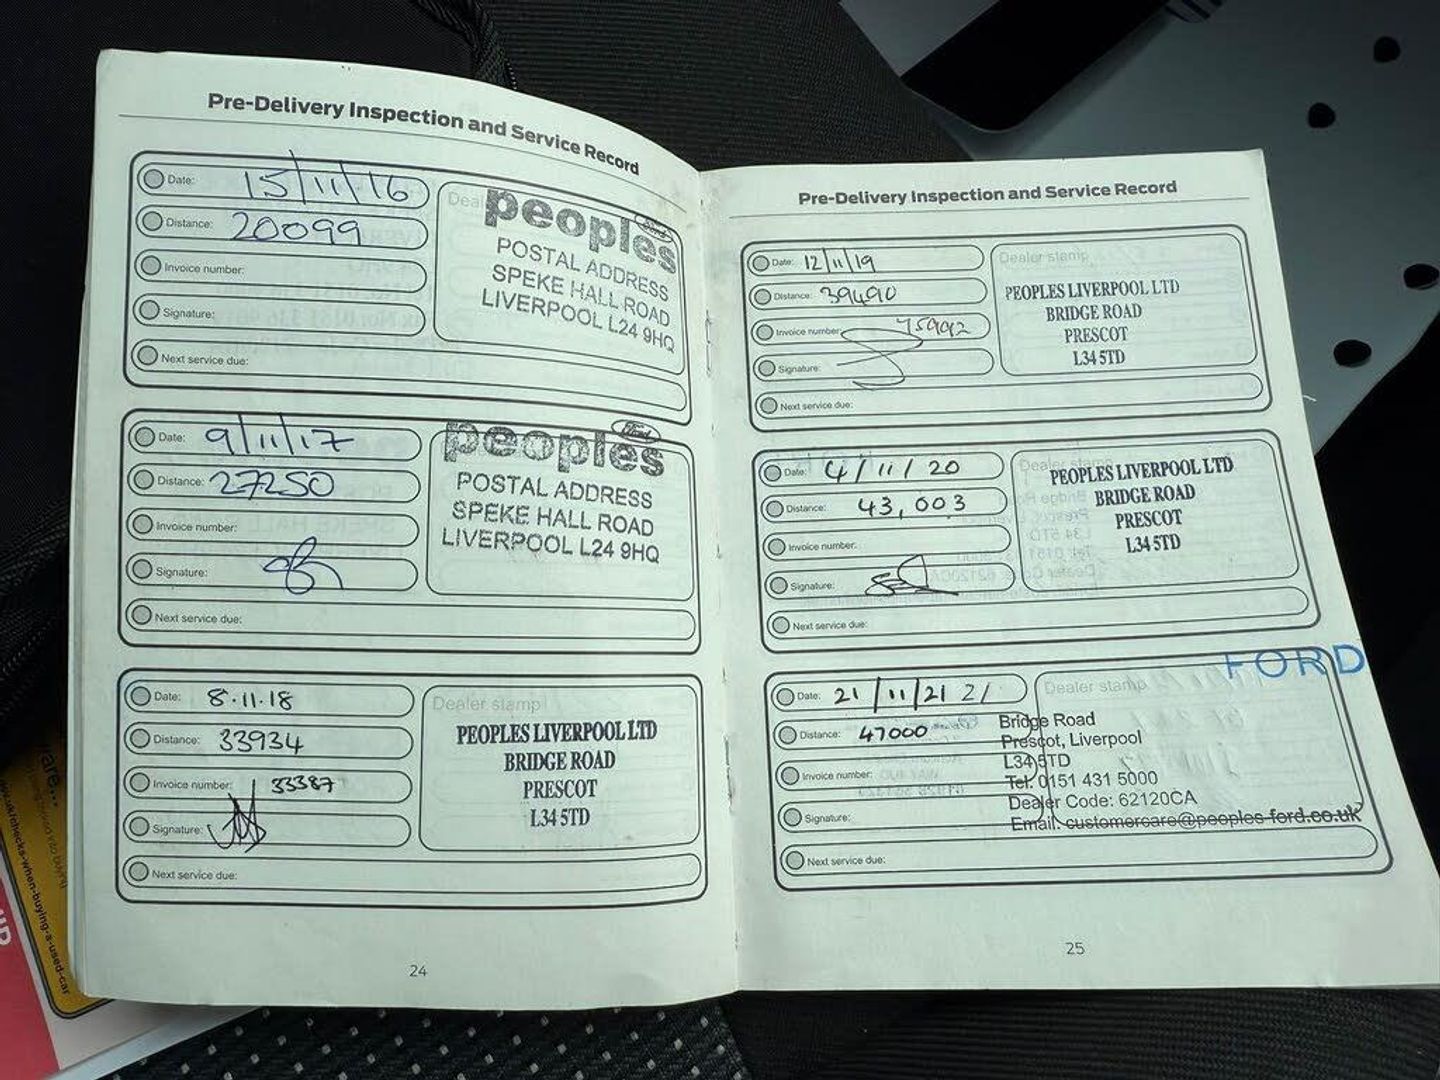 Pre-Delivery Inspection and Service Record
Date: 15/11/16
Distance: 20099
Invoice number:
Signature:
Next service due:
peoples Ford
POSTAL ADDRESS
SPEKE HALL ROAD
LIVERPOOL L24 9HQ
Date: 9/11/17
Distance: 27250
Invoice number:
Signature:
Next service due:
peoples Ford
POSTAL ADDRESS
SPEKE HALL ROAD
LIVERPOOL L24 9HQ
Date: 8.11.18
Distance: 33934
Invoice number: 33387
Signature:
Next service due:
Dealer stamp
PEOPLES LIVERPOOL LTD
BRIDGE ROAD
PRESCOT
L34 5TD
24
Pre-Delivery Inspection and Service Record
Date: 12/11/19
Distance: 39490
Invoice number: 75992
Signature:
Next service due:
Dealer stamp
PEOPLES LIVERPOOL LTD
BRIDGE ROAD
PRESCOT
L34 5TD
Date: 4/11/20
Distance: 43,003
Invoice number:
Signature:
Next service due:
Dealer stamp
PEOPLES LIVERPOOL LTD
BRIDGE ROAD
PRESCOT
L34 5TD
Date: 21/11/21 21
Distance: 47000
Invoice number:
Signature:
Next service due:
Dealer stamp
FORD
Bridge Road
Prescot, Liverpool
L34 5TD
Tel: 0151 431 5000
Dealer Code: 62120CA
Email: customercare@peoples-ford.co.uk
25